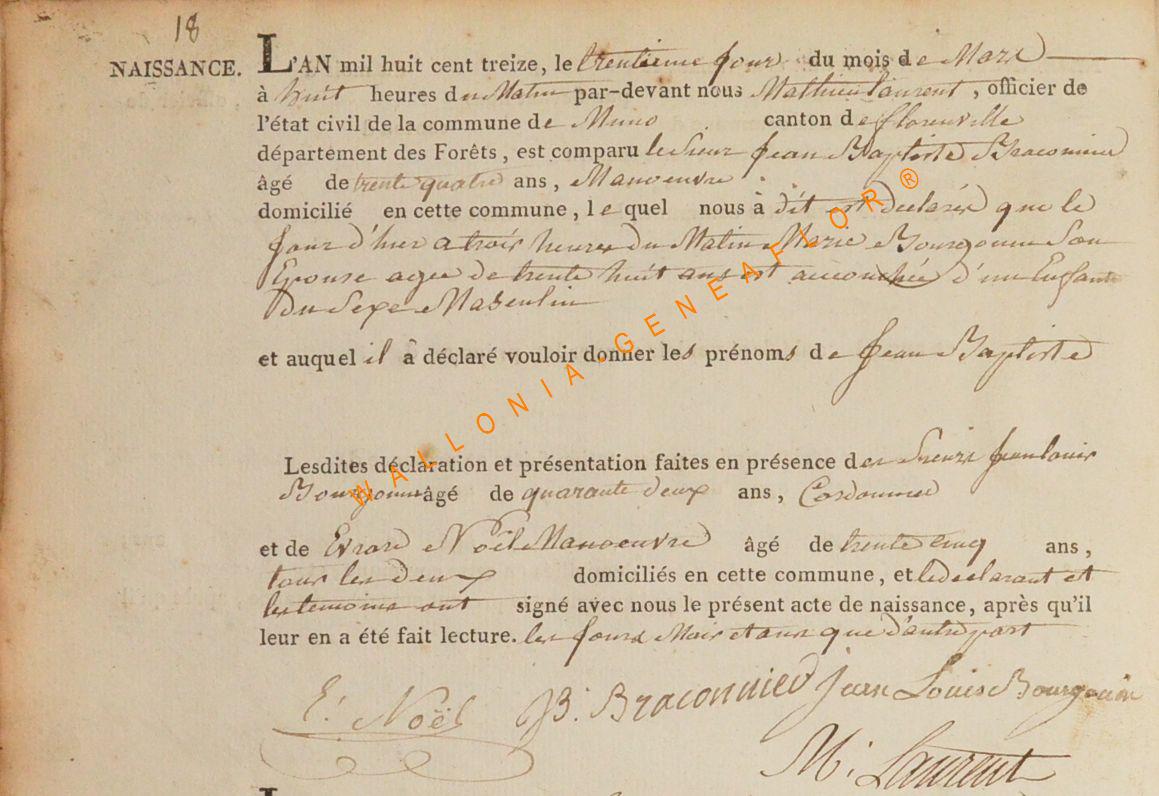 18
NAISSANCE. L'AN mil huit cent treize, le trentieme jour du mois de Mars
à huit heures du Matin par-devant nous Mathieu Laurent, officier de
l'état civil de la commune de Muno canton de florenville
département des Forêts, est comparu le Sieur Jean Baptiste Braconnier
âgé de trente quatre ans, Manoeuvre
domicilié en cette commune, le quel nous à dit et declaré que le
Jour d'hier a trois heures du Matin Marie Bourgouin Son
Epouse agée de trente huit ans est accouchée d'un Enfant
Du Sexe Masculin
et auquel il à déclaré vouloir donner les prénoms de Jean Baptiste
Lesdites déclaration et présentation faites en présence des Sieurs Jean louis
Bourgouin âgé de quarante deux ans, Cordonnier
et de Evrard Noël Manoeuvre âgé de trente cinq ans,
tous les deux domiciliés en cette commune, et le declarant et
les temoins ont signé avec nous le présent acte de naissance, après qu'il
leur en a été fait lecture. les jours Mois et ans que d'autre part
E. Noël JB. Braconnier Jean Louis Bourgouin
M. Laurent
WALLONIA-GENEAFLOR ®